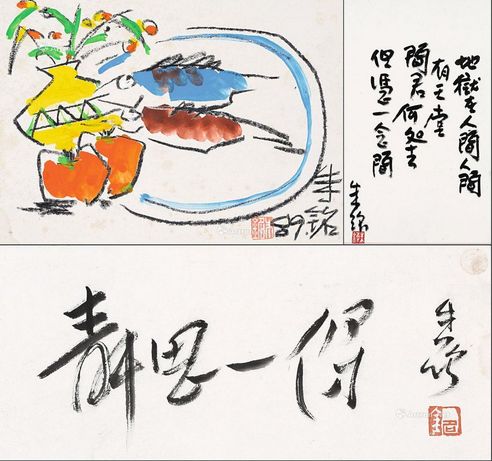 朱銘
89
地獄在人間人間
有天堂
問君何處去
但憑一念間
朱銘
靜思一
朱銘